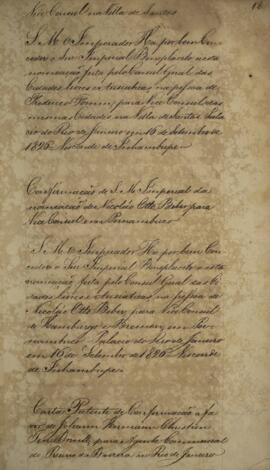 Vice Consul na Villa de Santos
S. M. O Imperador Ha por bem Con
ceder o Seu Imperial Beneplacito a esta
nomeação feita pelo Consul Geral das
Cidades livres e Anseaticas na pessoa de
Frederico Fomm, para Vice Consul das
mesmas Cidades na Villa de Santos. Pala
cio do Rio de Janeiro em 16 de Setembro de
1826. Visconde de Inhambupe
Confirmação de S. M. Imperial da
nomeação de Nicoláo Otto Bieber para
Vice Consul em Pernambuco
S. M. O Imperador Ha por bem Con
ceder o Seu Imperial Beneplacito a esta
nomeação feita pelo Consul Geral das Ci
dades livres e Anseaticas, na pessoa de
Nicoláo Otto Bieber, para Vice Consul
de Hamburgo e Bremen, em Per
nambuco. Palacio do Rio de Janeiro
em 16 de Setembro de 1826. Visconde
de Inhambupe
Carta Patente de Confirmação a fa
vor de Johann Hermann Christian
para Agente Commercial
do Reino da Baviera no Rio de Janeiro